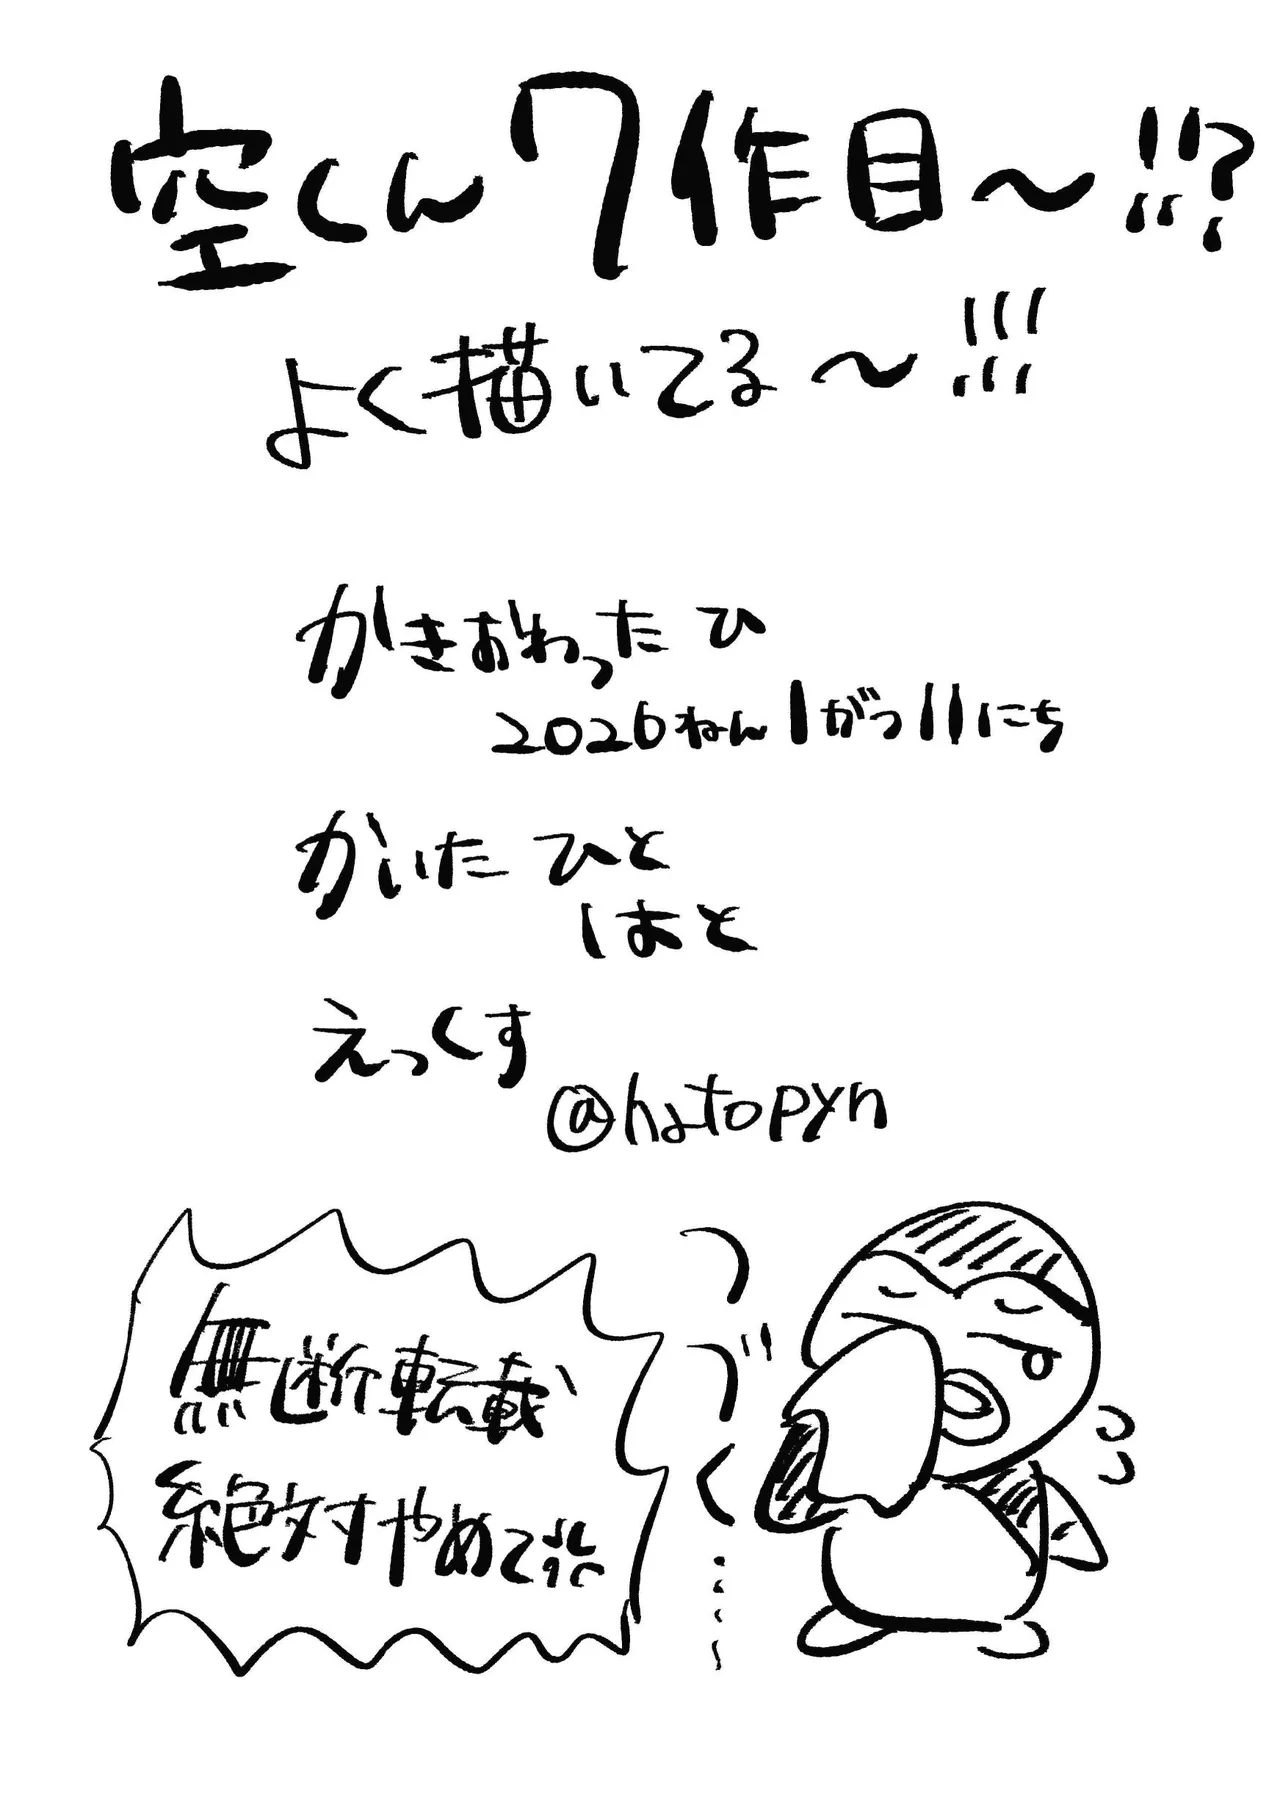 空くん7作目〜!!?
よく描いてる〜!!!
かきおわったひ
2026ねん1がつ11にち
かいたひと
はと
えっくす
@hatopyn
無断転載
絶対やめて
つづく…